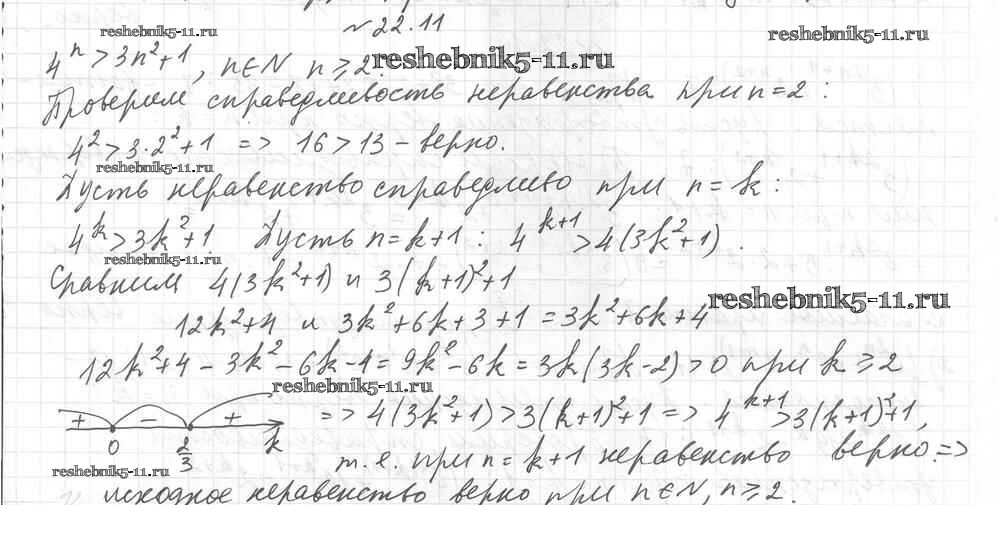 reshebnik5-11.ru
№22.11
reshebnik5-11.ru
4^n > 3n^2+1, n∈N, n⩾2.
reshebnik5-11.ru
Проверим справедливость неравенства при n=2:
4^2 > 3·2^2+1 => 16 > 13 – верно.
reshebnik5-11.ru
Пусть неравенство справедливо при n=k:
4^k > 3k^2+1. Пусть n=k+1: 4^{k+1} > 4(3k^2+1).
reshebnik5-11.ru
Сравним 4(3k^2+1) и 3(k+1)^2+1
reshebnik5-11.ru
12k^2+4 и 3k^2+6k+3+1=3k^2+6k+4
12k^2+4-3k^2-6k-4=9k^2-6k=3k(3k-2)>0 при k⩾2
reshebnik5-11.ru
+ – + => 4(3k^2+1)>3(k+1)^2+1 => 4^{k+1} >3(k+1)^2+1,
0 2/3 k
т.е. при n=k+1 неравенство верно. =>
reshebnik5-11.ru
исходное неравенство верно при n∈N, n⩾2.